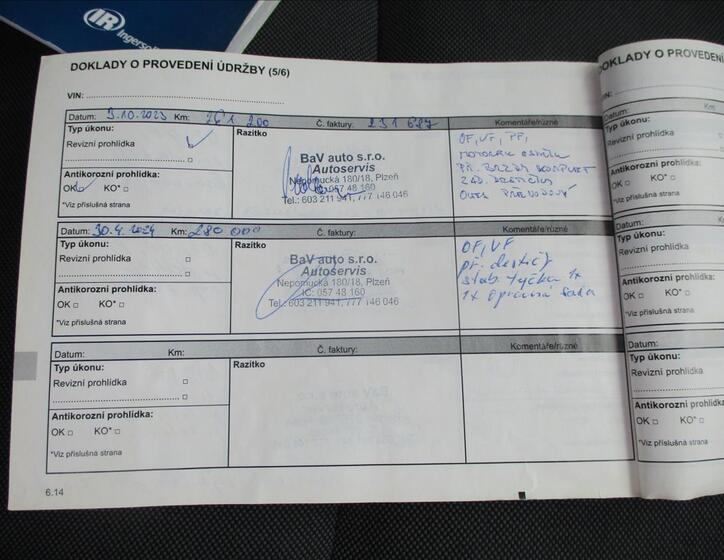 IR Ingersoll
DOKLADY O PROVEDENÍ ÚDRŽBY (5/6)
VIN:
Datum: 3.10.2023 Km: 261 200 Č. faktury: 231 687 Komentáře/různé
Typ úkonu:
Revizní prohlídka
Antikorozní prohlídka:
OK KO*
*Viz příslušná strana
Razítko
BaV auto s.r.o.
Autoservis
Nepomucká 180/18, Plzeň
IČ: 057 48 160
Tel.: 603 211 941, 777 146 046
OF, VF, PF,
PŘ. BRZDY KOMPLET
Datum: 30.4.2024 Km: 280 000 Č. faktury: Komentáře/různé
Typ úkonu:
Revizní prohlídka
Antikorozní prohlídka:
OK KO*
*Viz příslušná strana
Razítko
BaV auto s.r.o.
Autoservis
Nepomucká 180/18, Plzeň
IČ: 057 48 160
Tel.: 603 211 941, 777 146 046
OF, VF
př. destičy
stab. tyčka 1x
1x opravná sada
Datum: Km: Č. faktury: Komentáře/různé
Typ úkonu:
Revizní prohlídka
Antikorozní prohlídka:
OK KO*
*Viz příslušná strana
Razítko
6.14
DOKLADY O PROVEDENÍ
VIN:
Datum:
Typ úkonu:
Revizní prohlídka
Antikorozní prohlídka:
OK KO*
*Viz příslušná strana
Datum:
Typ úkonu:
Revizní prohlídka
Antikorozní prohlídka:
OK KO*
*Viz příslušná strana
Datum:
Typ úkonu:
Revizní prohlídka
Antikorozní prohlídka:
OK KO*
*Viz příslušná strana